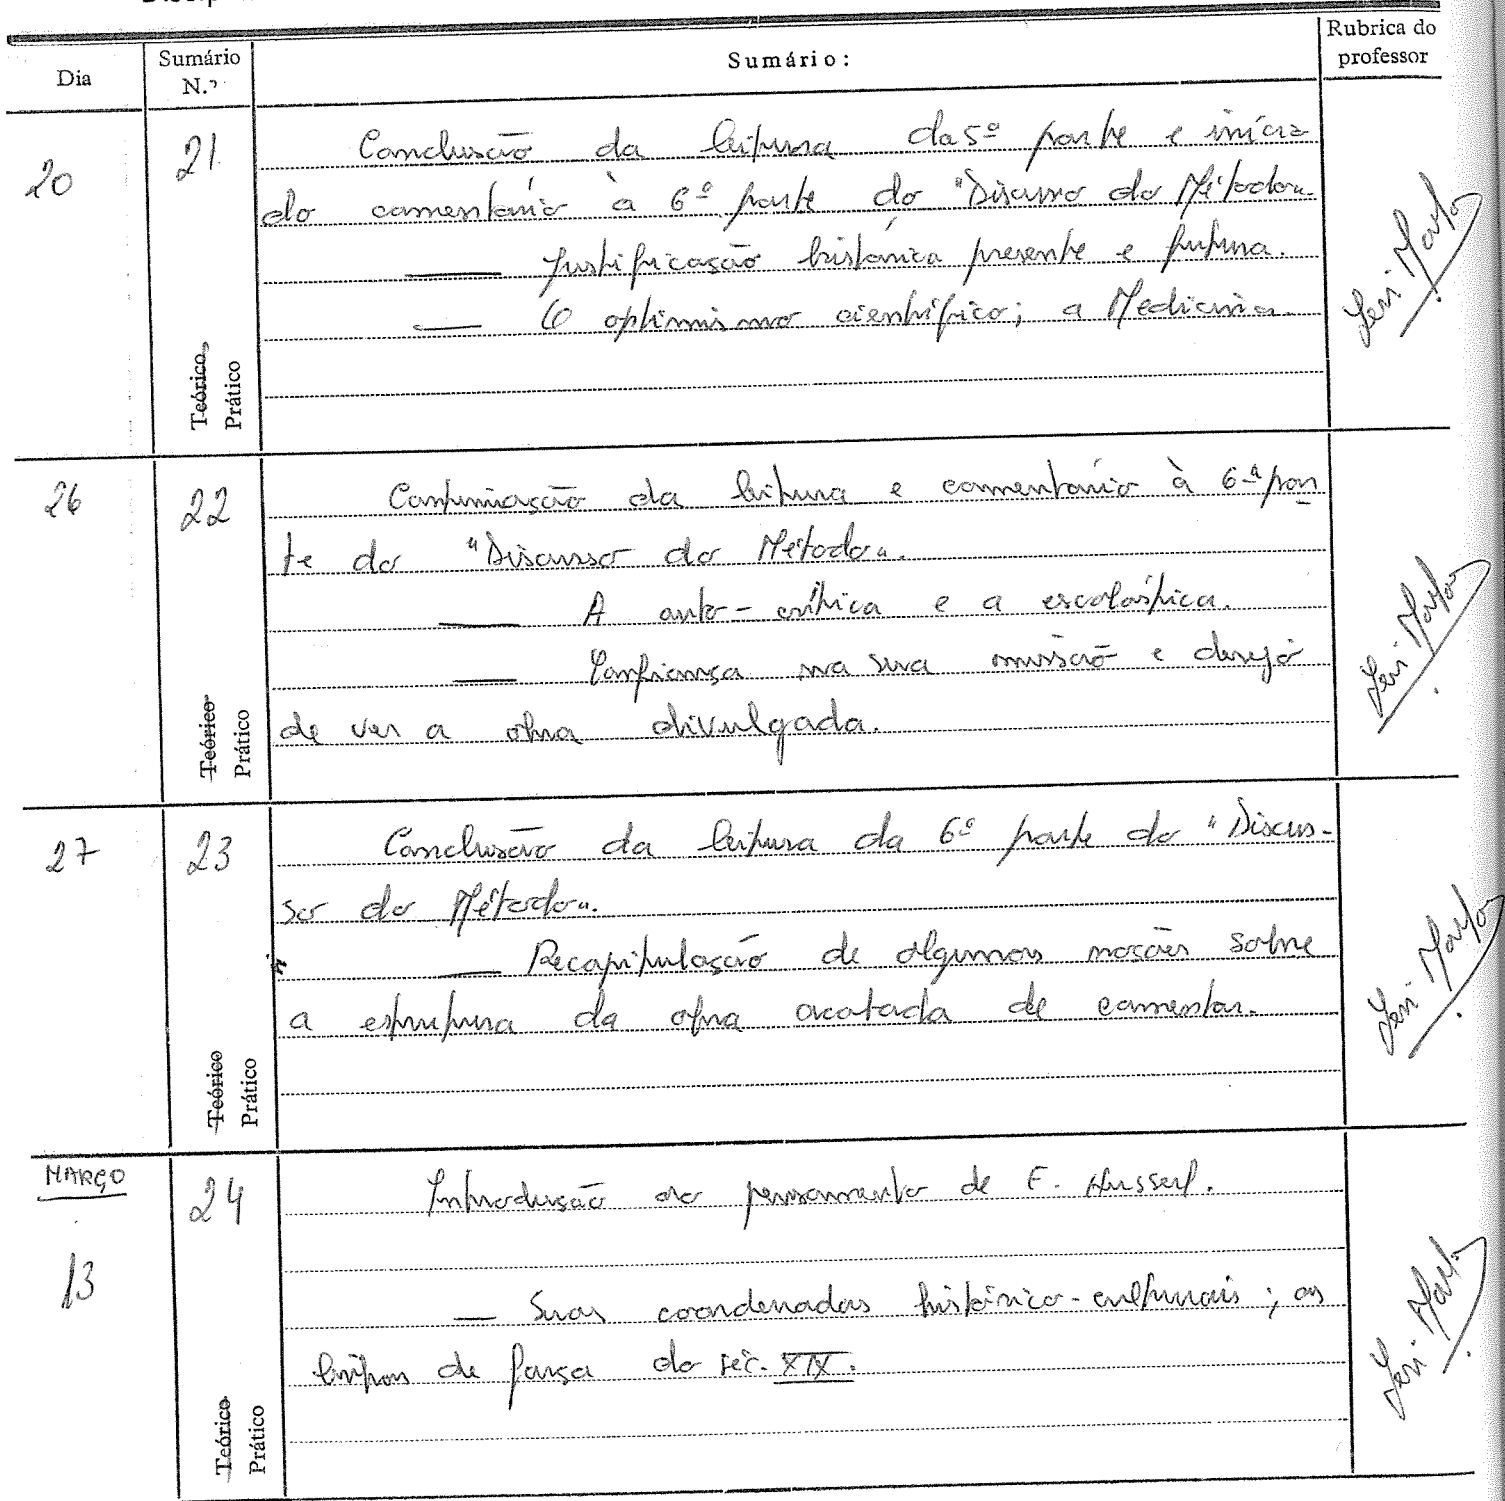 Dia
Sumário N.º
Sumário:
Rubrica do professor
20
21
Conclusão da leitura da 5ª parte e início
do comentário à 6ª parte do "Discurso do Método".
— Justificação histórica presente e futura.
— O optimismo científico; a Medicina.
Teórico
Prático
26
22
Continuação da leitura e comentário à 6ª par
te do "Discurso do Método".
— A auto-crítica e a escolástica.
— Confiança na sua missão e desejo
de ver a obra divulgada.
Teórico
Prático
27
23
Conclusão da leitura da 6ª parte do "Discur-
so do Método".
— Recapitulação de algumas noções sobre
a estrutura da obra acabada de comentar.
Teórico
Prático
MARÇO
13
24
Introdução ao pensamento de E. Husserl.
— Suas coordenadas histórico-culturais; as
linhas de força do séc. XIX.
Teórico
Prático